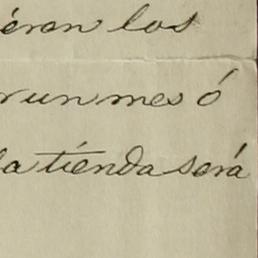 ieran los
r un mes ó
la tienda será